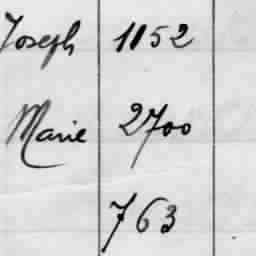 Joseph 1152
Marie 2700
763